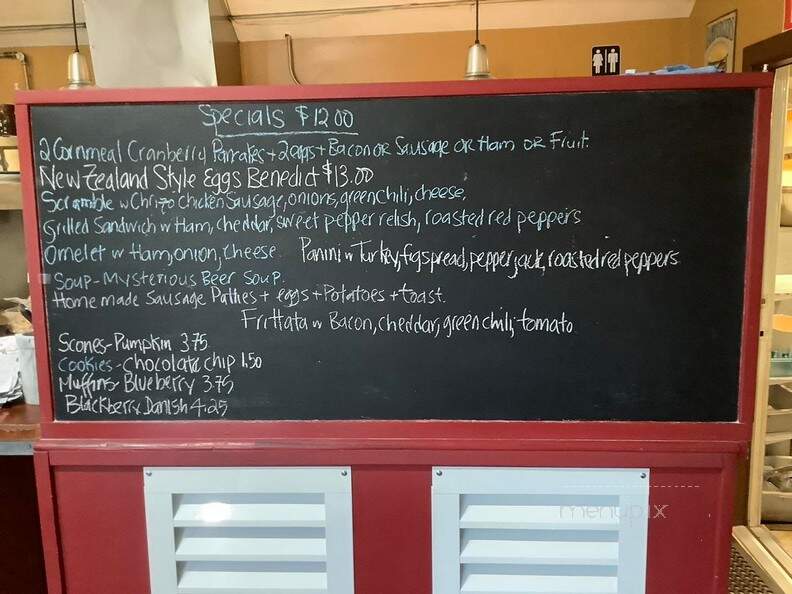 Specials $12.00
2 Cornmeal Cranberry Pancakes + 2 eggs + Bacon or Sausage or Ham or Fruit.
New Zealand Style Eggs Benedict $13.00
Scramble w Chrizo Chicken Sausage, onions, green chili, cheese.
Grilled Sandwich w Ham, cheddar, sweet pepper relish, roasted red peppers
Omelet w Ham, onion, Cheese.
Panini w Turkey, fig spread, pepper jack, roasted red peppers
Soup - Mysterious Beer Soup.
Home made Sausage Patties + eggs + Potatoes + toast.
Frittata w Bacon, cheddar, green chili, tomato
Scones - Pumpkin 3.75
Cookies - Chocolate chip 1.50
Muffins - Blueberry 3.75
Blackberry Danish 4.25
menupix